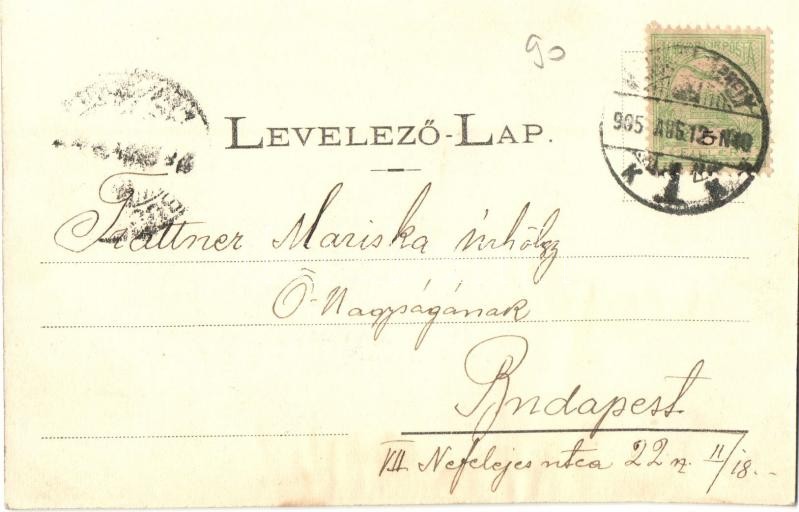 90
LEVELEZŐ-LAP.
905 AUG.
Trattner Mariska úrhölgy
Ő-Nagyságának
Budapest
VII Nefelejcs utca 22 sz. II/18.-